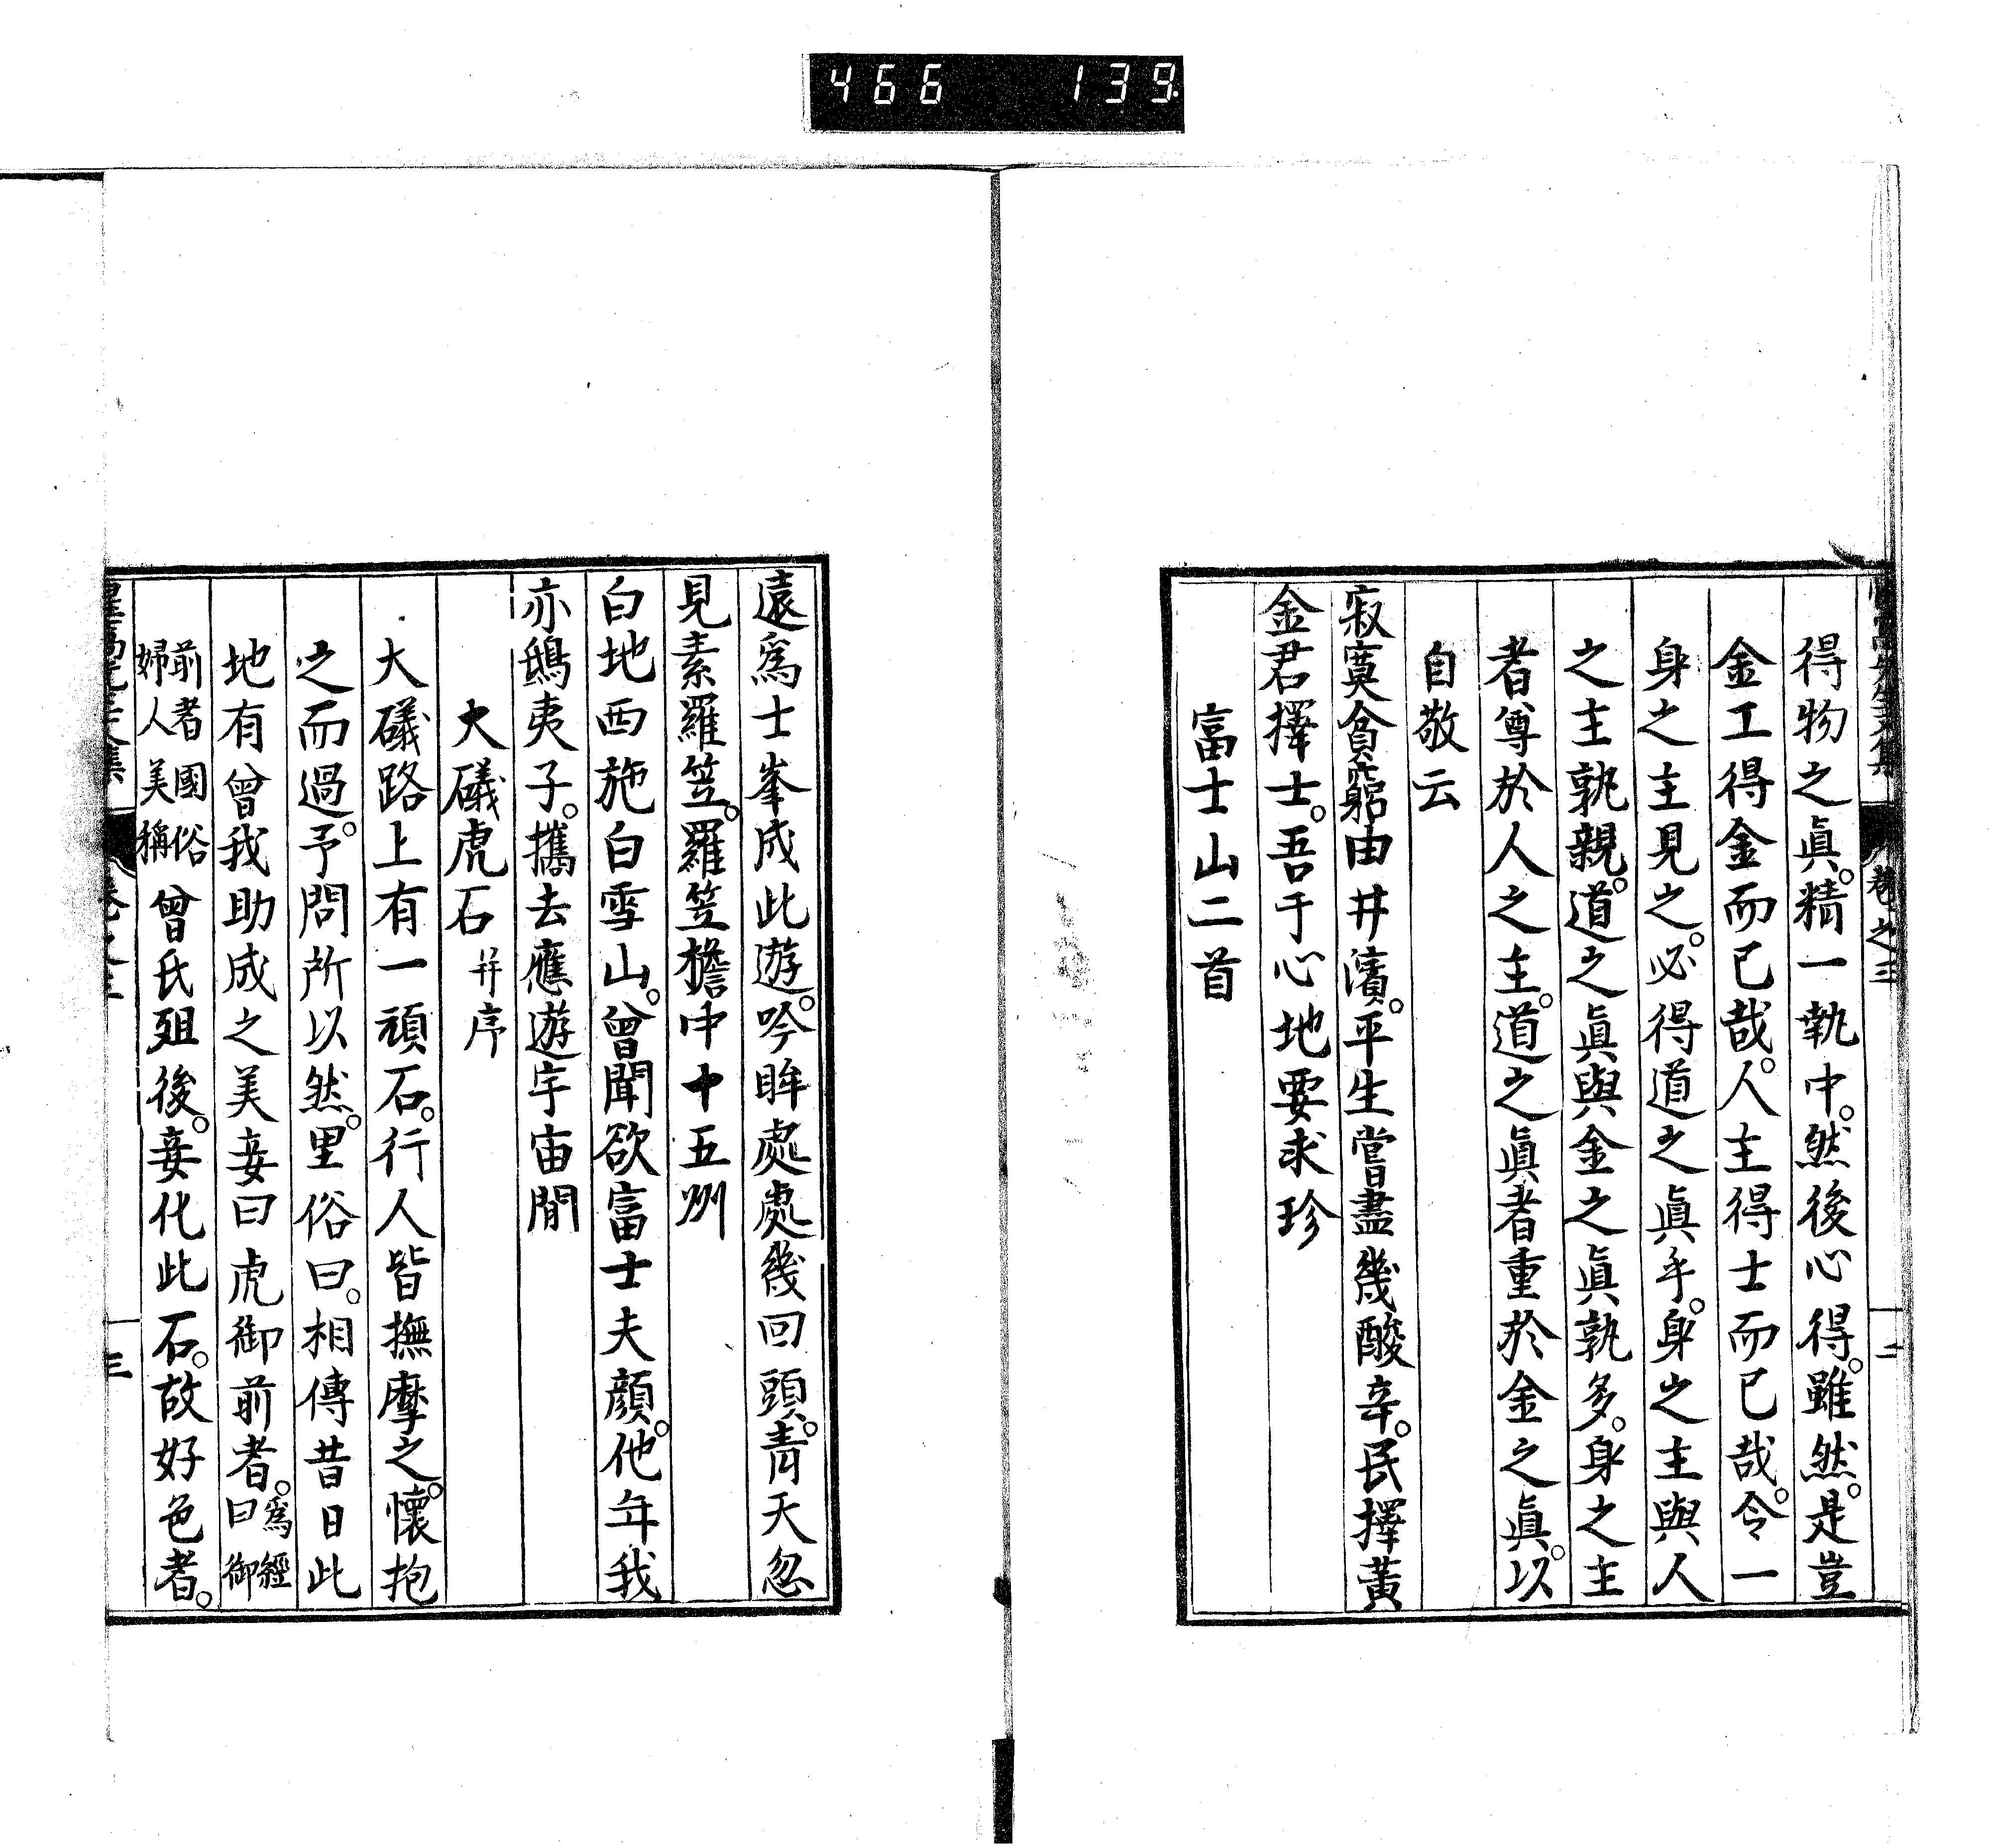 466 139
卷之三
二
得物之眞。精一執中。然後心得。雖然。是豈
金工得金而已哉。人主得士而已哉。令一
身之主見之。必得道之眞乎。身之主與人
之主孰親。道之眞與金之眞孰多。身之主
者尊於人之主。道之眞者重於金之眞。以
自敬云
寂寞貧窮由井濱。平生嘗盡幾酸辛。民擇黃
金君擇士。吾于心地要求珍
富士山二首
遠爲士峯成此遊。吟眸處處幾回頭。青天忽
見素羅笠。羅笠檐中十五州
白地西施白雪山。曾聞欲富士夫顔。他年我
亦鴟夷子。攜去應遊宇宙間
大礒虎石 并序
大礒路上有一頑石。行人皆撫摩之。懷抱
之而過。予問所以然。里俗曰。相傳昔日此
地有曾我助成之美妾曰虎御前者。爲經曰御
前者國俗婦人美稱曾氏殂後。妾化此石。故好色者。
三